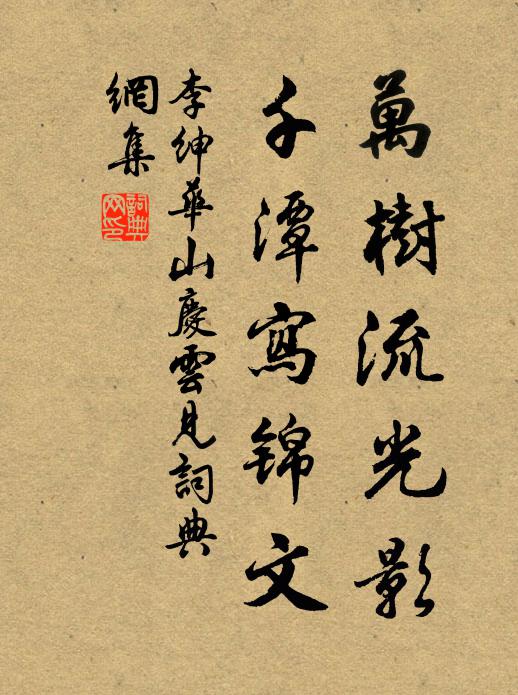 萬樹流光影
千潭寫錦文
李紳華山慶雲見詞典
網集
詞典
网印